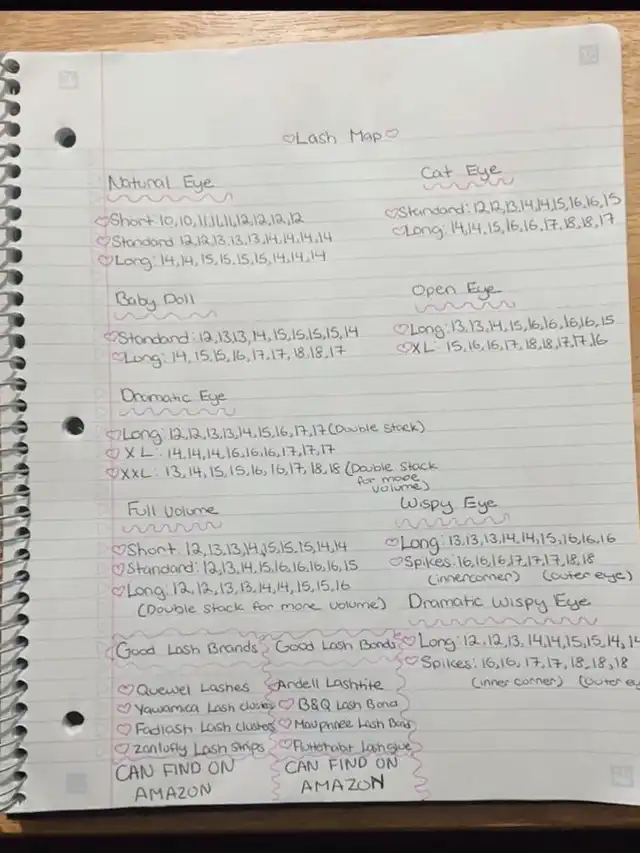 ♡Lash Map♡
Natural Eye
♡Short 10,10,11,11,11,12,12,12,12
♡Standard 12,12,13,13,13,14,14,14,14
♡Long: 14,14,15,15,15,15,14,14,14
Cat Eye
♡Standard: 12,12,13,14,14,15,16,16,15
♡Long: 14,14,15,16,16,17,18,18,17
Baby Doll
♡Standard: 12,13,13,14,15,15,15,15,14
♡Long: 14,15,15,16,17,17,18,18,17
Open Eye
♡Long: 13,13,14,15,16,16,16,16,15
♡XL: 15,16,16,17,18,18,17,17,16
Dramatic Eye
♡Long: 12,12,13,13,14,15,16,17,17 (Double Stack)
♡XL: 14,14,14,16,16,16,17,17,17
♡XXL: 13,14,15,15,16,16,17,18,18 (Double Stack
for more
volume)
Full Volume
♡Short: 12,13,13,14,15,15,15,14,14
♡Standard: 12,13,14,15,16,16,16,16,15
♡Long: 12,12,13,13,14,14,15,15,16
(Double stack for more volume)
Wispy Eye
♡Long: 13,13,13,14,14,15,16,16,16
♡Spikes: 16,16,16,17,17,17,18,18
(inner corner) (outer eye)
Dramatic Wispy Eye
♡Long: 12,12,13,14,14,15,15,14,14
♡Spikes: 16,16,17,17,18,18,18
(inner corner)
Good Lash Brands
♡Quewel Lashes
♡Yawamica Lash clusters
♡Fadlash Lash clusters
♡Zanlufly Lash Strips
CAN FIND ON
AMAZON
Good Lash Bonds
Ardell Lashtite
♡B&Q Lash Bond
Lash Bond
Lash glue
CAN FIND ON
AMAZON